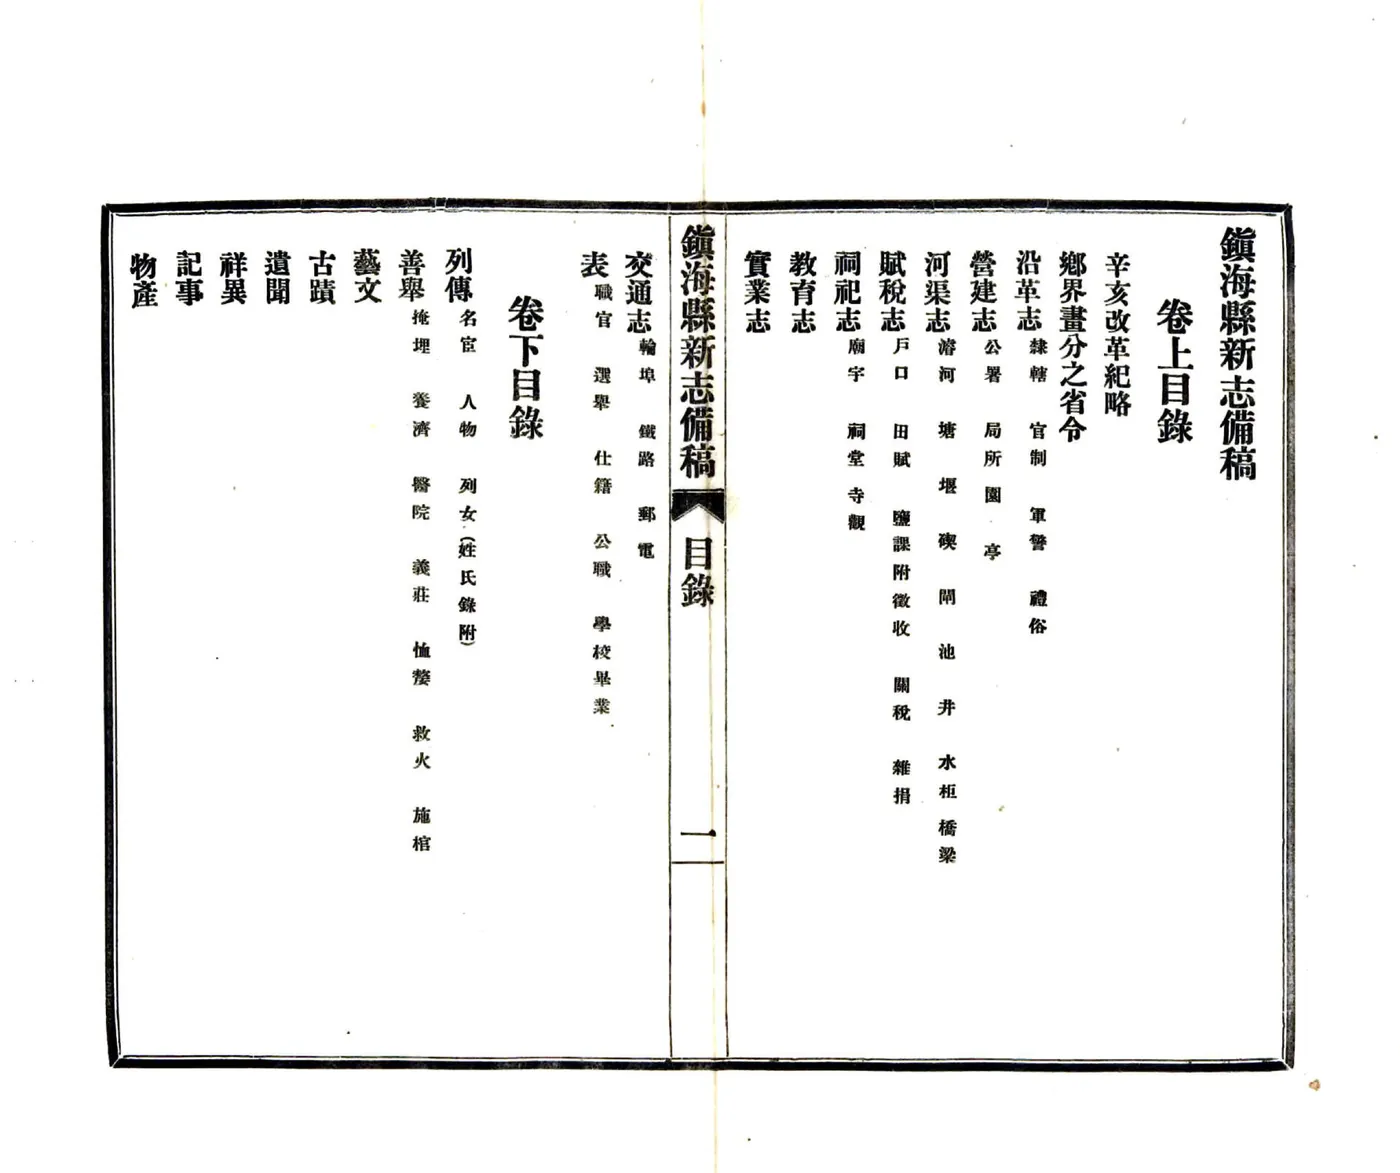 鎭海縣新志備稿
卷上目錄
辛亥改革紀略
鄉界畫分之省令
沿革志 隸轄 官制 軍警 禮俗
營建志 公署 局所 園 亭
河渠志 濬河 塘 堰 碶 閘 池 井 水柜 橋梁
賦稅志 戶口 田賦 鹽課附徵收 關稅 雜捐
祠祀志 廟宇 祠堂 寺觀
教育志
實業志
鎭海縣新志備稿 目錄 一
交通志 輪埠 鐵路 郵電
表 職官 選舉 仕籍 公職 學校畢業
卷下目錄
列傳 名宦 人物 列女(姓氏錄附)
善舉 掩埋 養濟 醫院 義莊 恤嫠 救火 施棺
藝文
古蹟
遺聞
祥異
記事
物產